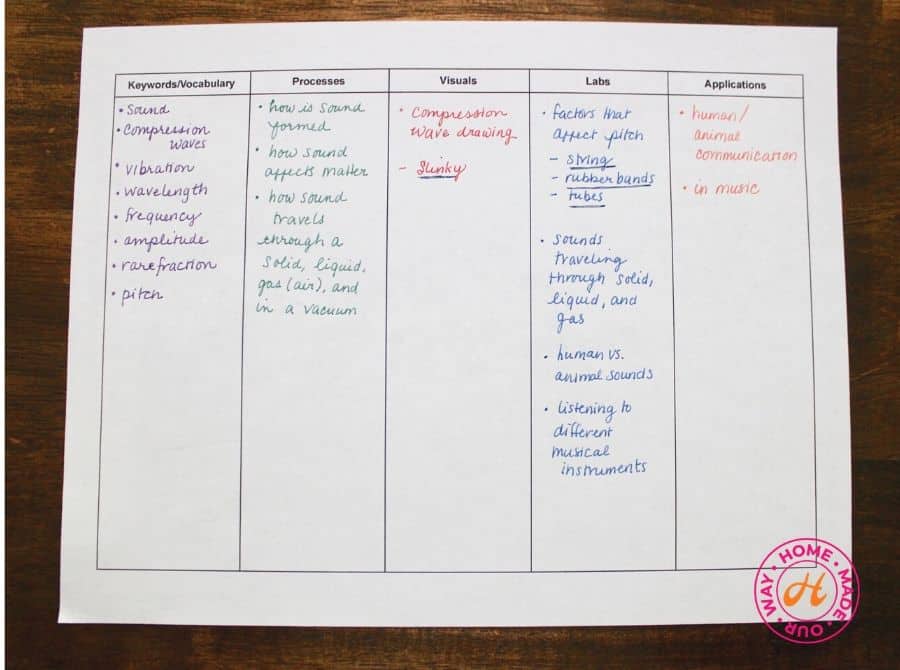 Keywords/Vocabulary
• Sound
• Compression
waves
• vibration
• wavelength
• frequency
• amplitude
• rarefraction
• pitch
Processes
• how is sound
formed
• how sound
affects matter
• how sound
travels
through a
solid, liquid,
gas (air), and
in a vacuum
Visuals
• Compression
wave drawing
- Slinky
Labs
• factors that
affect pitch
- string
- rubber bands
- tubes
• sounds
traveling
through solid,
liquid, and
gas
• human vs.
animal sounds
• listening to
different
musical
instruments
Applications
• human/
animal
communication
• in music
HOME • MADE • OUR • WAY •
H